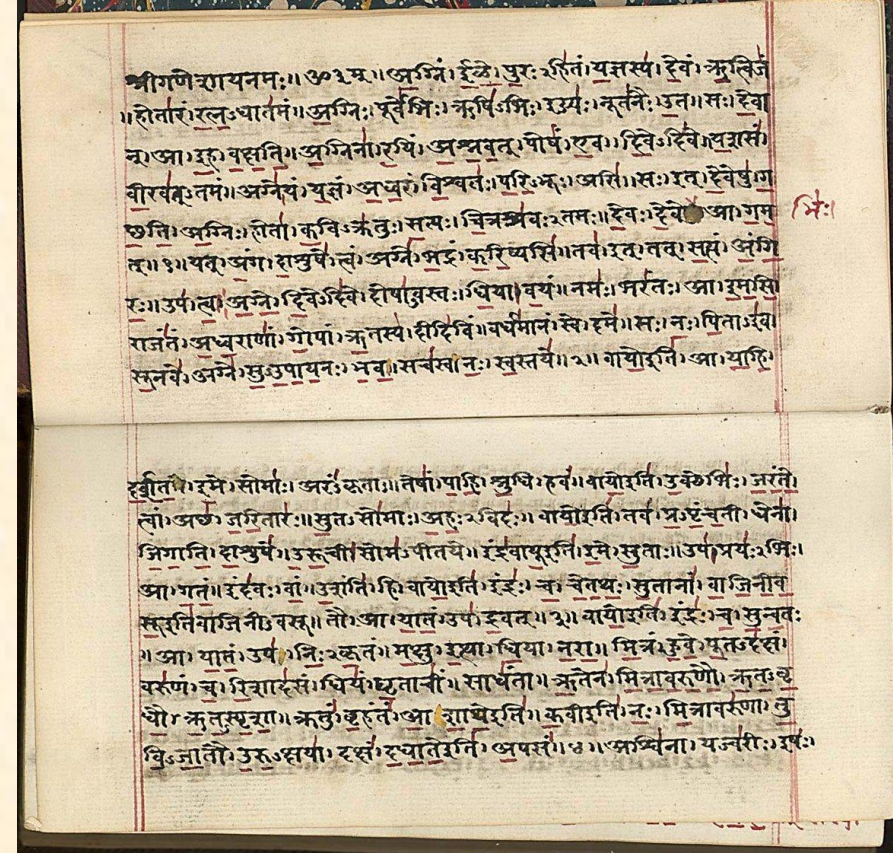 श्रीगणेशायनमः॥ॐ३म्॥अ॒ग्निं।ई॒ळे॒।पु॒रः२हि॑तं।य॒ज्ञस्य॑।दे॒वं।ऋ॒त्विजं॑
॥होता॑रं।र॒त्न॒ऽधात॑मं॥अ॒ग्निः।पूर्वे॑भिः।ऋषि॑ऽभिः।ईड्यः॑।नूत॑नैः।उ॒त॥सः।दे॒वा
न्।आ।इ॒ह।व॒क्ष॒ति॒॥अ॒ग्निना॑।र॒यिं।अ॒श्न॒व॒त्।पोषं॑।ए॒व।दि॒वेऽदि॑वे॥य॒शसं॑
वी॒रव॑त्ऽतमं॥अग्ने॑।यं।य॒ज्ञं।अ॒ध्व॒रं।वि॒श्वतः॑।प॒रि॒ऽभूः।असि॑॥सः।इत्।दे॒वेषु॑।ग
च्छ॒ति॒।अ॒ग्निः।होता॑।क॒विऽक्र॑तुः।स॒त्यः।चि॒त्रश्र॑वः२तमः॥दे॒वः।दे॒वे आ।ग॒म॒
भिः।
त्॥१॥यत्।अं॒ग।दा॒शुषे॑।त्वं।अग्ने॑।भ॒द्रं।क॒रि॒ष्यसि॑॥तव॑।इत्।तत्।स॒त्यं।अं॒गि॒
रः॒॥उप॑।त्वा॒।अ॒ग्ने॒।दि॒वेऽदि॑वे।दोषा॑ऽवस्तः।धि॒या।व॒यं॥नमः॑।भरं॑तः।आ।इ॒म॒सि॒
राजं॑तं।अ॒ध्व॒राणां॑।गो॒पां।ऋ॒तस्य॑।दीदि॑विं॥वर्ध॑मानं।स्वे।दमे॑॥सः।नः॒।पि॒ताऽइ॑व।
सू॒नवे॑।अग्ने॑।सु॒ऽउ॒पा॒य॒नः।भ॒व॒॥सच॑स्व।नः॒।स्व॒स्तये॑॥२॥वायो॒इति॑।आ।या॒हि॒।
इ॒मे।सोमाः॑।अरं॑ऽकृताः॥तेषां॑।पा॒हि॒।श्रु॒धि।हवं॑॥वायो॒इति॑।उ॒क्थेभिः॑।ज॒रं॒ते॒
त्वां।अच्छ॑।ज॒रि॒तारः॑॥सु॒तऽसो॑माः।अ॒हः२विदः॑॥वायो॒इति॑।तव॑।प्र॒ऽपृं॒च॒ती।धेना॑।
जि॒गा॒ति॒।दा॒शुषे॑॥उ॒रू॒ची।सोम॑ऽपीतये॥इंद्र॑वायू॒इति॑।इ॒मे।सु॒ताः॥उप॑।प्रयः॑२भिः।
आ।ग॒तं॒॥इंद॑वः।वां॒।उ॒शंति॑।हि॥वायो॒इति॑।इंद्रः॑।च॒।चे॒त॒थः॒।सु॒तानां॑।वा॒जि॒नी॒व॒
सू॒इति॑वाजिनीऽवसू॥तौ।आ।या॒तं॒।उप॑।द्र॒वत्॥३॥वायो॒इति॑।इंद्रः॑।च॒।सु॒न्व॒तः
॥आ।या॒तं॒।उप॑।निः॒२कृ॒तं॥म॒क्षु।इ॒त्था।धि॒या।न॒रा॒॥मि॒त्रं।हु॒वे॒।पू॒तऽद॑क्षं।
वरु॑णं।च॒।रि॒शाद॑सं॥धियं॑।घृ॒ताचीं॑।साधं॑ता॥ऋ॒तेन॑।मि॒त्रा॒व॒रु॒णौ॒।ऋ॒त॒ऽवृ॒
धौ॒।ऋ॒त॒ऽस्पृ॒शा॒॥क्रतुं॑।बृ॒हंतं॑।आ॒शा॒थे॒इति॑॥क॒वीइति॑।नः॒।मि॒त्रावरु॑णा।तु॒
वि॒ऽजा॒तौ।उ॒रु॒ऽक्षया॑॥दक्षं॑।द॒धा॒ते॒इति॑।अ॒पसं॑॥४॥अश्वि॑ना।यज्व॑रीः।इषः॑।